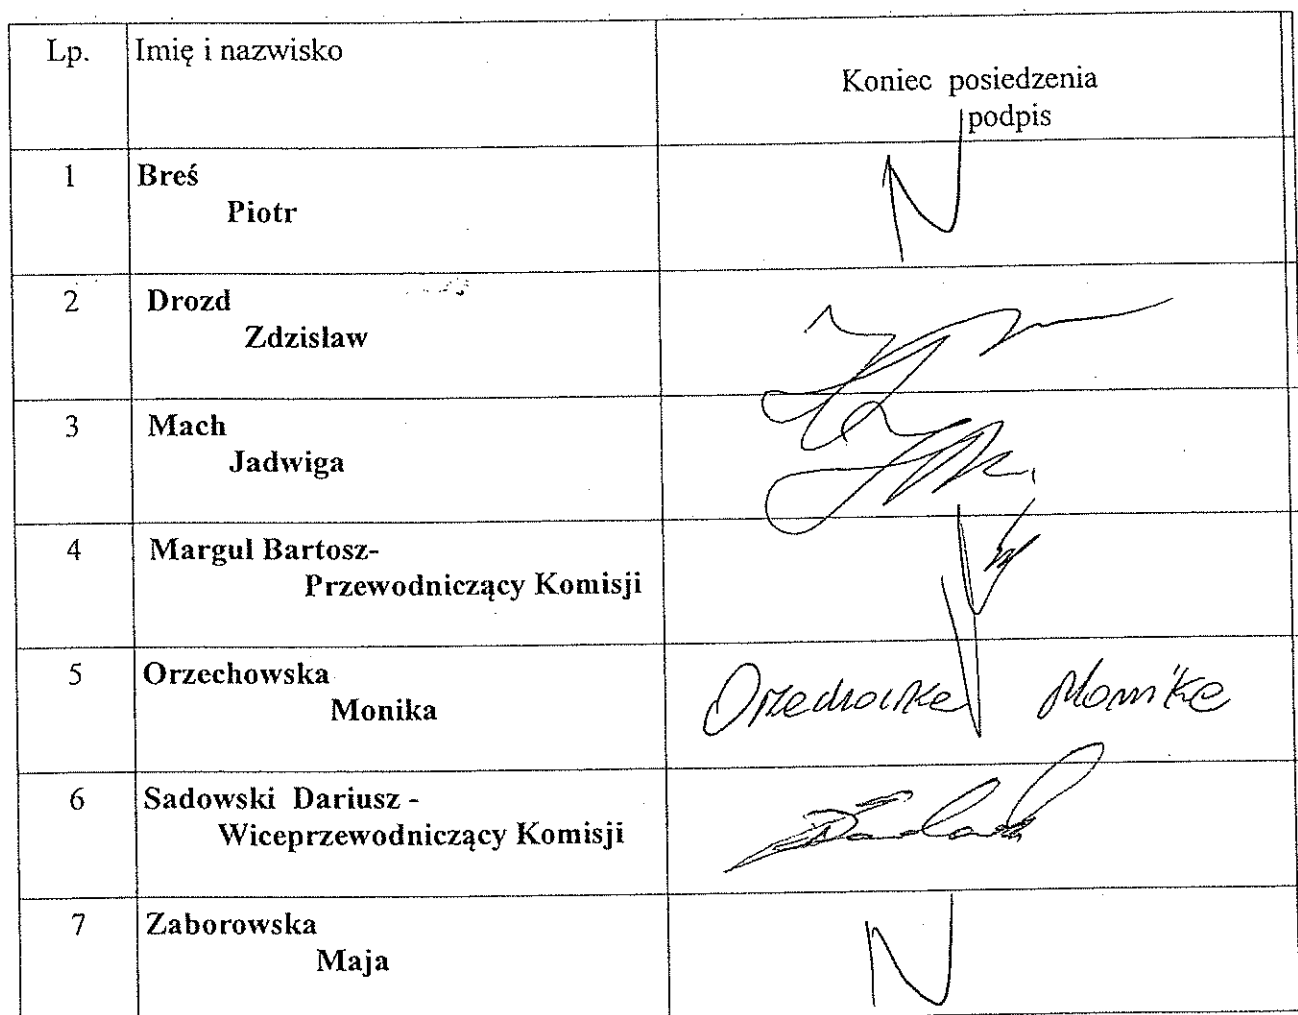 Lp. Imię i nazwisko
Koniec posiedzenia
podpis
1 Breś
Piotr
N
2 Drozd
Zdzisław
3 Mach
Jadwiga
4 Margul Bartosz-
Przewodniczący Komisji
5 Orzechowska
Monika
Orzechowska Monika
6 Sadowski Dariusz -
Wiceprzewodniczący Komisji
7 Zaborowska
Maja
N